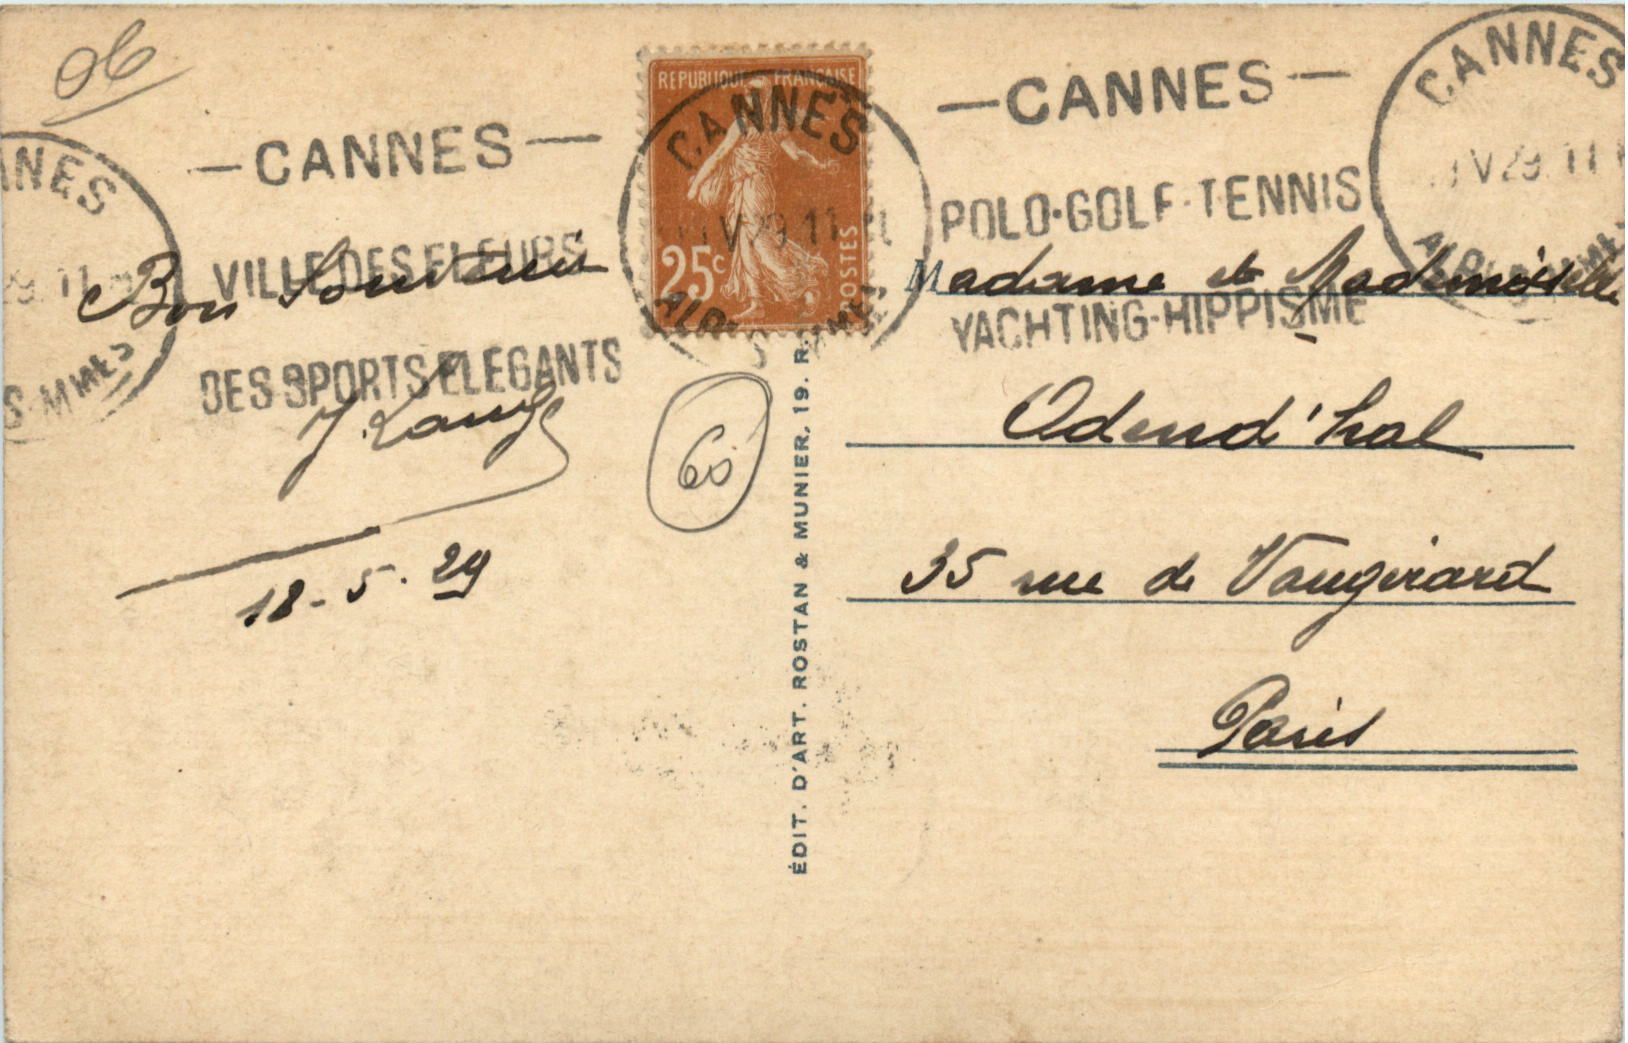 06
REPUBLIQUE FRANCAISE
25c
POSTES
CANNES
V 29 11
— CANNES —
VILLE DES FLEURS
DES SPORTS ELEGANTS
— CANNES —
POLO·GOLF·TENNIS
YACHTING-HIPPISME
CANNES
V 29 11
Bon Souvenir
18-5-29
60
ÉDIT. D'ART. ROSTAN & MUNIER, 19. R.
Madame et Mademoiselle
Odend'hal
35 rue de Vaugirard
Paris